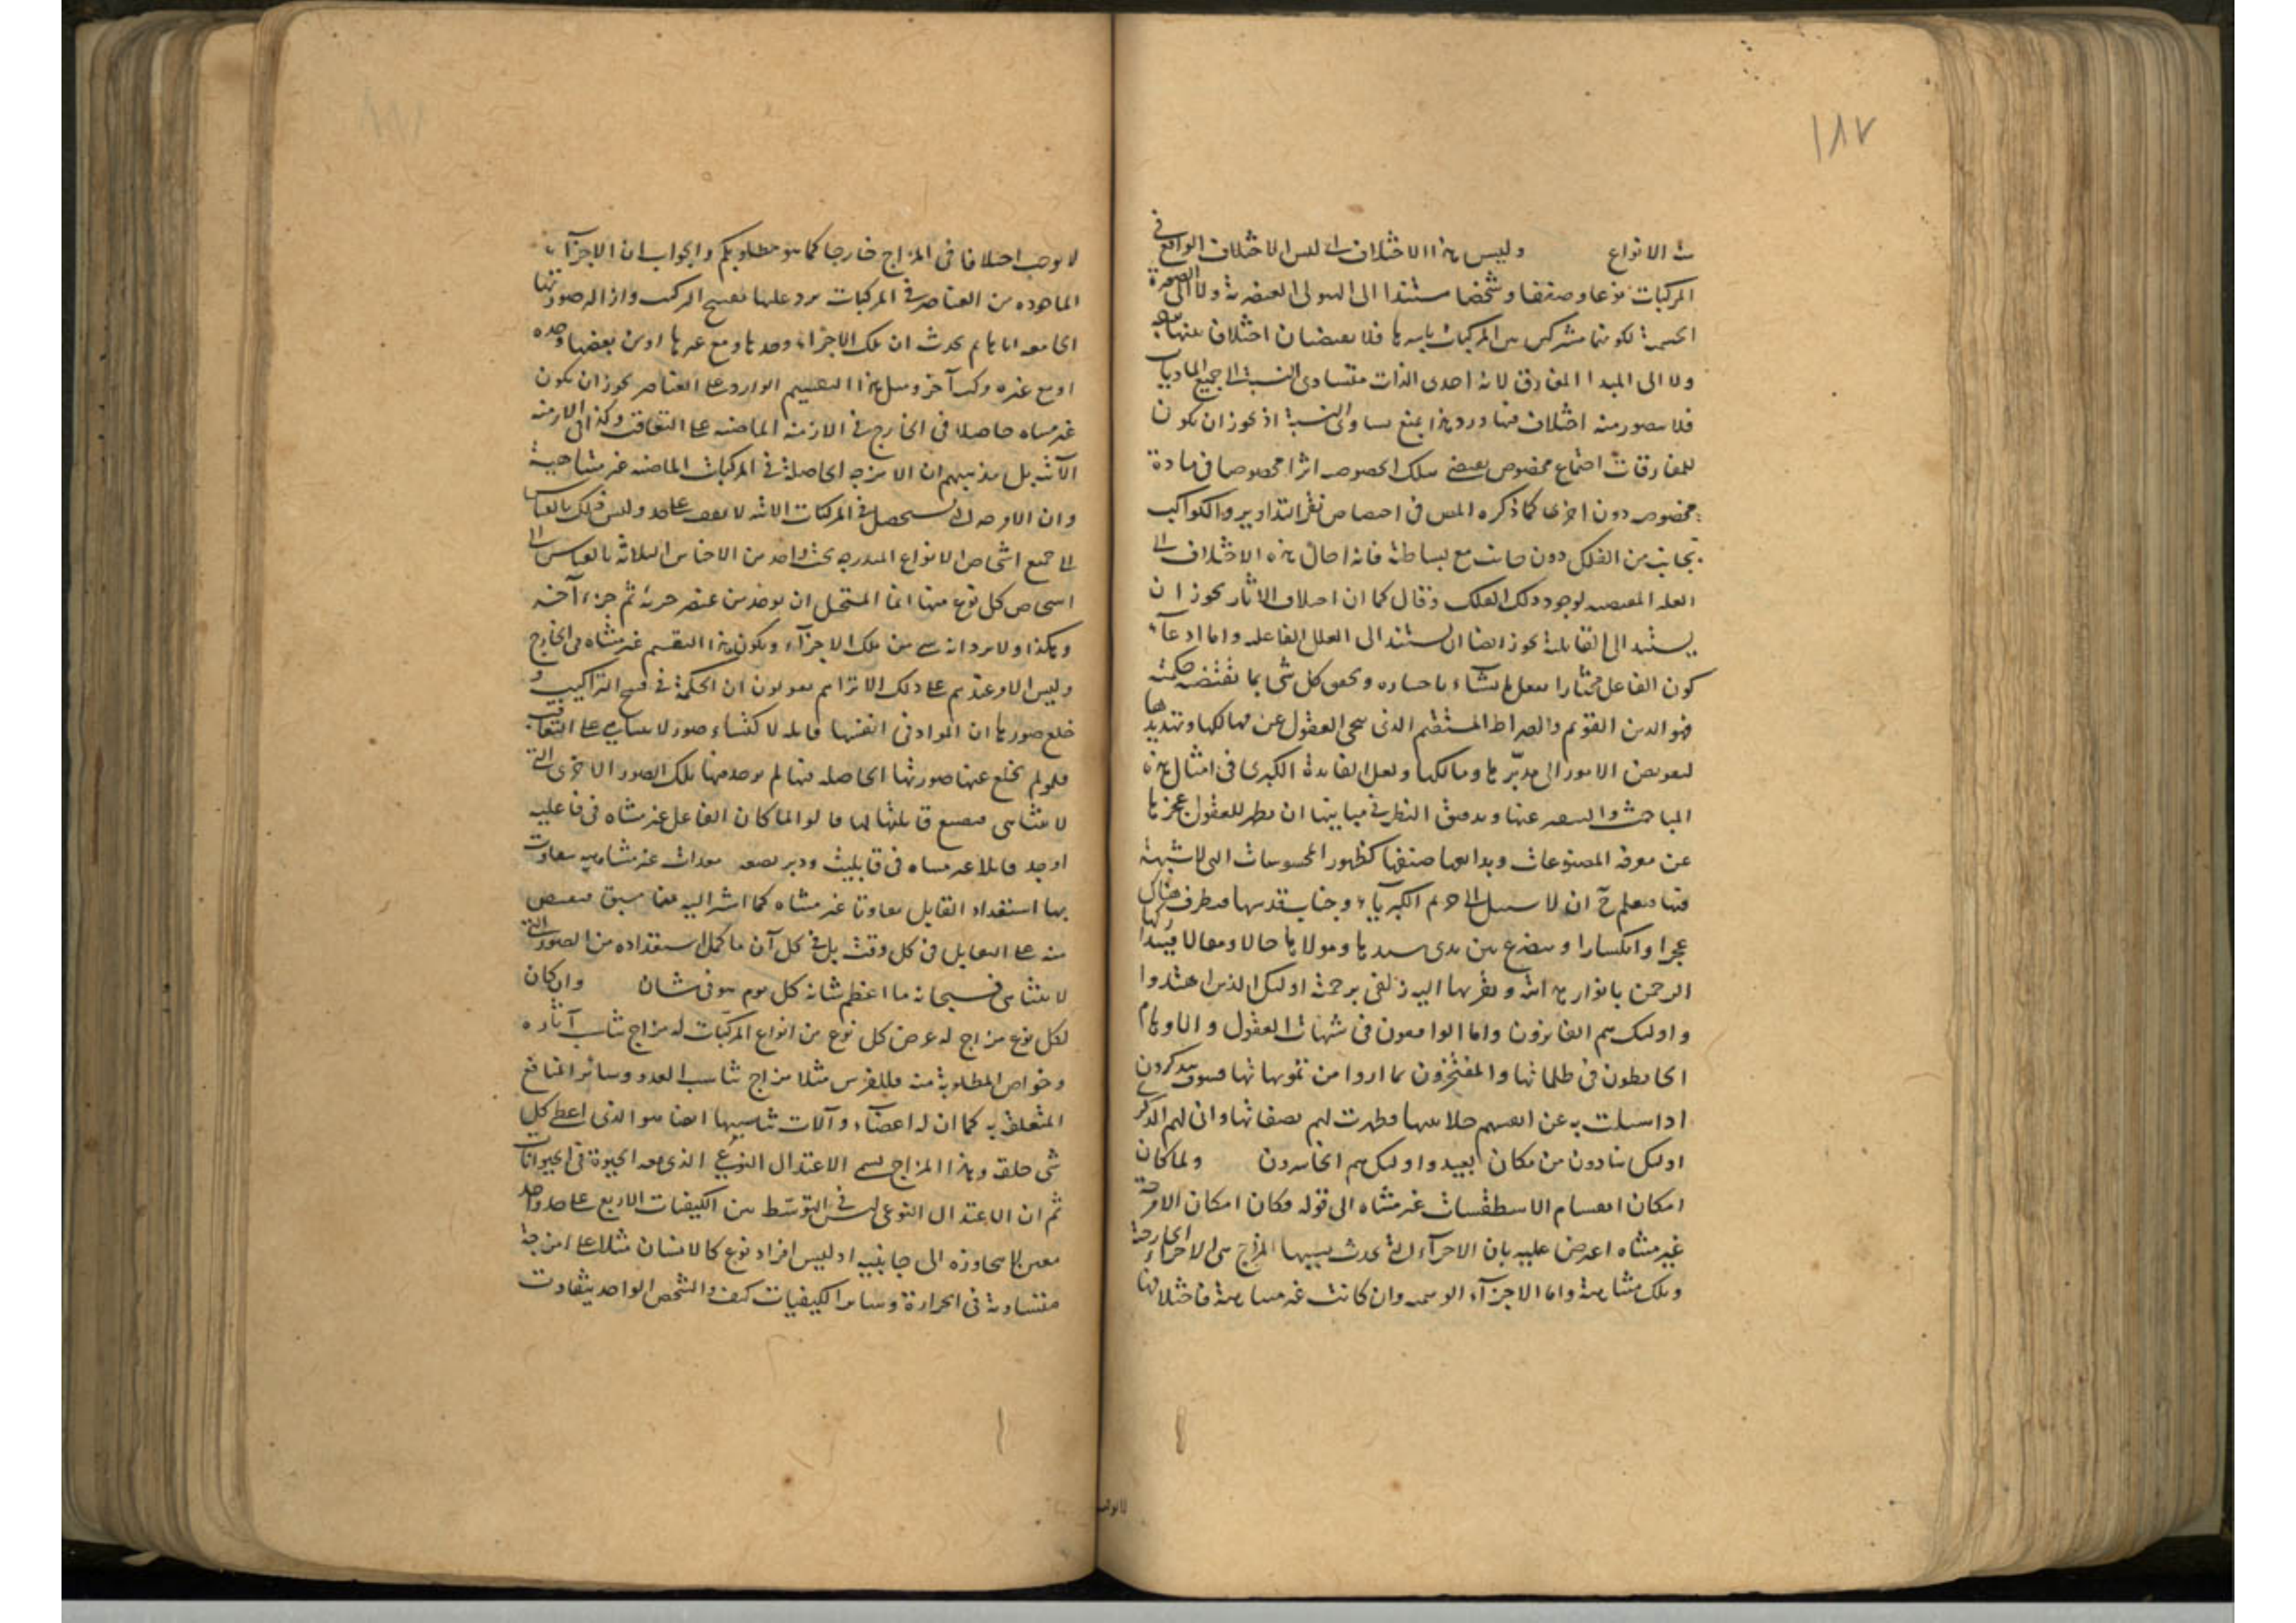 ١٨٧
ث الانواع وليس هذا الاختلاف اى ليس الاختلاف الواقع فى
المركبات نوعا وصنفا وشخصا مستندا الى الهيولى العنصرية ولا الى الصورة
الجسمية لكونهما مشتركين بين المركبات باسرها فلا يقتضيان اختلاف
ولا الى المبدا المفارق لانه احدى الذات متساوى النسبة الى جميع الماديات
فلا يتصور منه اختلاف فيها ورد هذا بمنع تساوى النسبة اذ يجوز ان يكون
للمفارقات اجتماع مخصوص يقتضى بتلك الخصوصية اثرا مخصوصا فى مادة
مخصوصة دون اخرى كما ذكره المص فى اختصاص نقر التداوير والكواكب
بجانب من الفلك دون جانب مع بساطته فانه احال هذه الاختلاف الى
العلة المقتضية لوجود ذلك الفلك وقال كما ان اختلاف الاثار يجوز ان
يستند الى القابلية يجوز ايضا ان يستند الى العلل الفاعلية واما ادعاء
كون الفاعل مختارا يفعل ما يشاء باختياره ويخص كل شئ بما تقتضيه حكمته
فهو الدين القويم والصراط المستقيم الذى ينجى العقول عن مهالكها وتهتدى بها
لتفويض الامور الى مدبرها ومالكها ولعل الفايدة الكبرى فى امثال هذه
المباحث والتعمق عنها وتدقيق النظر فى مبانيها ان يظهر للعقول عجزها
عن معرفة المصنوعات وبدايعها صنفها كظهور المحسوسات التى لا شبهة
فيها فتعلم ح ان لا سبيل الى حرم الكبرياء وجناب قدسها فتطرق هناك
عجزا وانكسارا وتتضرع بين يدى سيدها ومولاها حالا ومقالا
الرحمن بانوار هدايته ويقربها اليه زلفى برحمته اولئك الذين اهتدوا
واولئك هم الفائزون واما الواقعون فى شبهات العقول والاوهام
الخابطون فى ظلماتها والمغترون بما اروا من تمويهاتها فسوف يتذكرون
اذا انسلت به عن انفسهم جلابيبها وظهرت لهم بصفاتها وانى لهم الذكرى
اولئك ينادون من مكان بعيد واولئك هم الخاسرون ولما كان
امكان انقسام الاسطقسات غير متناه الى قوله فكان امكان الامزجة
غير متناه اعترض عليه بان الاجزاء التى يحدث بسببها المزاج هى الاجزاء الخارجية
وتلك متناهية واما الاجزاء الوهمية وان كانت غير متناهية فاختلافها
لا يوجب
لا يوجب اختلافا فى المزاج خارجا كما هو مطلوبكم والجواب ان الاجزاء
الماخوذه من العناصر فى المركبات يرد عليها تقسيم المركب وازالة صورتها
الجامعه اياها ثم يحدث ان تلك الاجزاء وحدها ومع غيرها او من بعضها وحده
او مع غيره مركب آخر ومثل هذا التقسيم الوارد على العناصر يجوز ان يكون
غير متناه حاصلا فى الخارج فى الازمنة الماضيه على التعاقب وكذا فى الازمنه
الآتية بل مذهبهم ان الامزجه الحاصلة فى المركبات الماضيه غير متناهية
وان الامزجه التى ستحصل فى المركبات الاتيه لا تقف على حد وليس ذلك بالقياس
الى جميع اشخاص الانواع المندرجه تحت واحد من الاجناس الثلاثة بالقياس الى
اشخاص كل نوع منها انما المستحيل ان يوخذ من عنصر جزئه ثم جزء آخر
وهكذا ولا يرد انه شئ من تلك الاجزاء ويكون هذا التقسيم غير متناه فى الخارج
وليس الامر عندهم على ذلك الا تراهم يقولون ان الحكمة فى فسخ التراكيب و
خلع صورها ان المواد فى انفسها قابله لاكتساء صور لا تتناهى على التعاقب
فلو لم يخلع عنها صورتها الحاصله فيها لم يوجد فيها تلك الصور الاخرى التى
لا تتناهى فيضيع قابليتها لها قالوا لما كان الفاعل غير متناه فى فاعليه
اوجد قابلا غير متناه فى قابليته ودبر معدات غير متناهيه يتفاوت
بها استعداد القابل تفاوتا غير متناه كما اشير اليه فيما سبق فيفيض
منه على القابل فى كل وقت بل فى كل آن ما كمل استعداده من الصور التى
لا يتناهى فسبحانه ما اعظم شانه كل يوم هو فى شان وان كان
لكل نوع مزاج له عرض كل نوع من انواع المركبات له مزاج يناسب آثاره
وخواص المطلوبة منه فللفرس مثلا مزاج يناسب العدو وسائر المنافع
المتعلقة به كما ان له اعضاء وآلات تناسبها ايضا هو الذى اعطى كل
شئ خلقه وهذا المزاج يسمى الاعتدال النوعى الذى معه الحيوة فى الحيوانات
ثم ان الاعتدال النوعى ليس فى التوسط بين الكيفيات الاربع على حد واحد
معين لا يتجاوزه الى جانبيه اذ ليس افراد نوع كالانسان مثلا على امزجة
متساوية فى الحرارة وسائر الكيفيات كيف والشخص الواحد يتفاوت